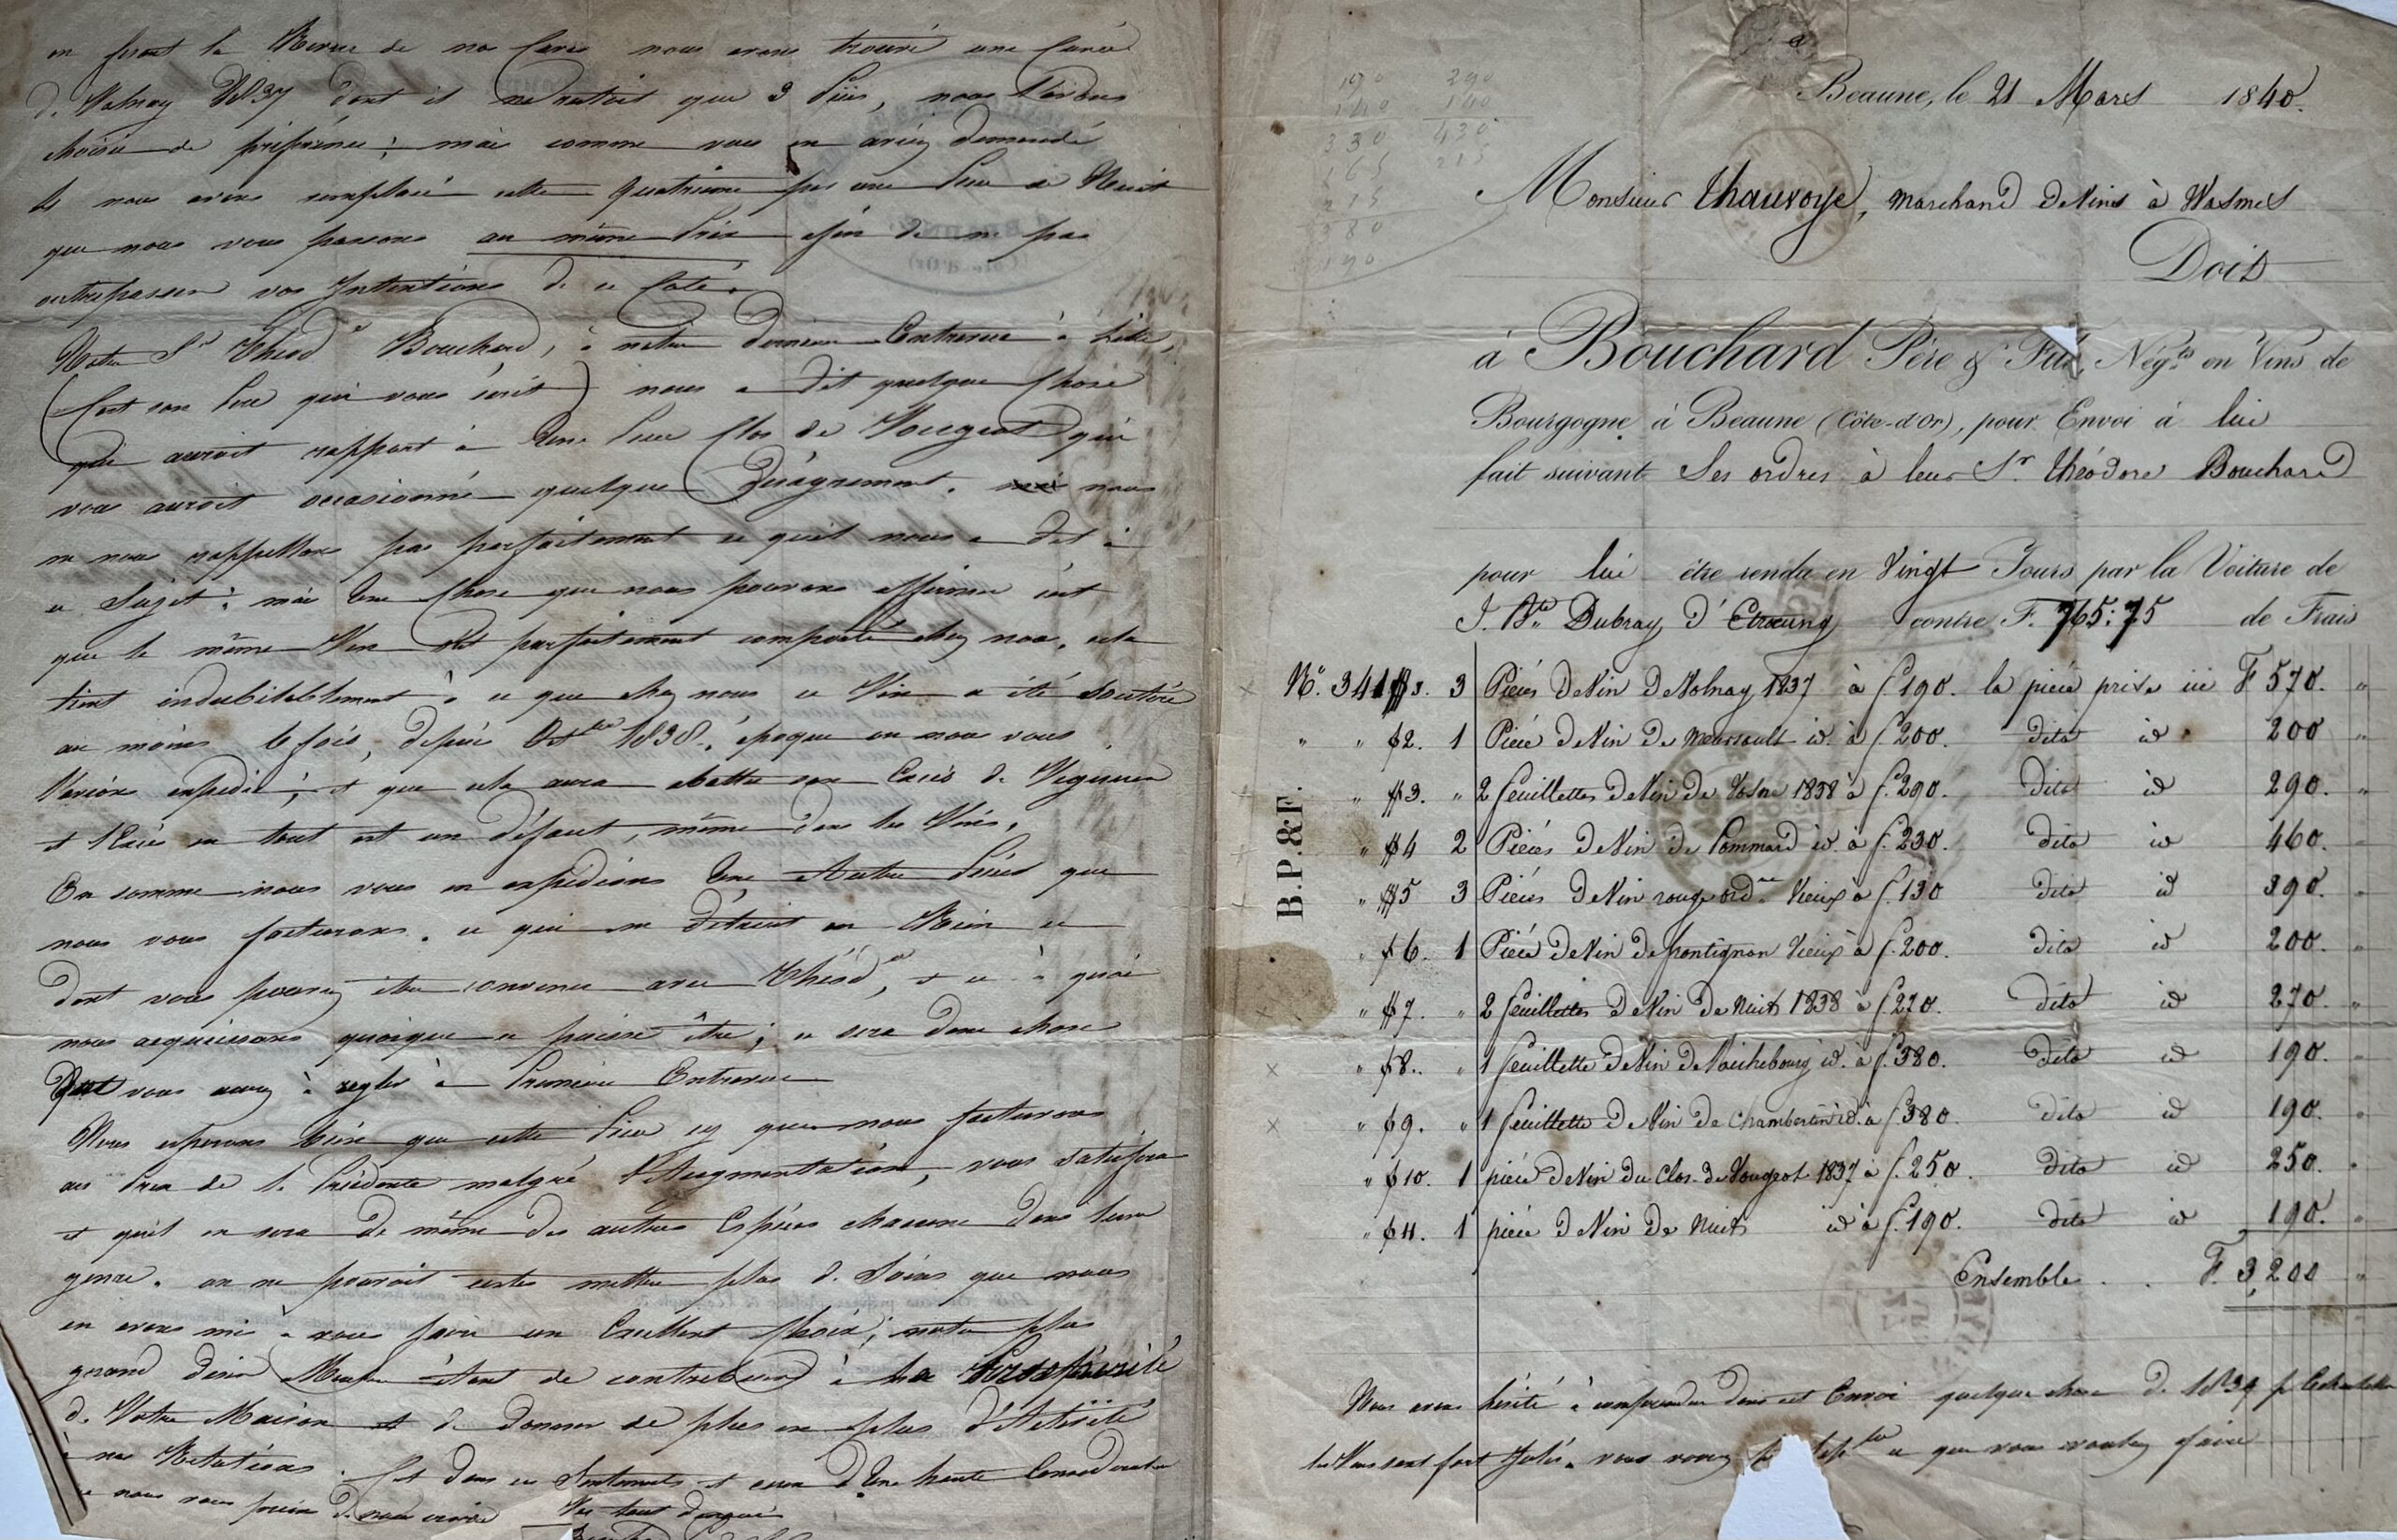 en fesant la Revue de nos Caves nous avons trouvé une Cuvée
de Volnay 1837 dont il ne restait que 3 Pièces, nous l'avons
choisie de préférence; mais comme vous en aviez demandé
4 nous avons remplacé cette quatrième par une Pièce de Nuits
que nous vous passons au même Prix afin de ne pas
outrepasser vos Intentions de ce Coté.
Notre Sr Théodre Bouchard, à notre dernière Entrevue à Lille,
(C'est son Père qui vous écrit) nous a dit quelque Chose
qui aurait rapport à Une Pièce Clos de Vougeot qui
vous auroit occasionné quelque Désagrément. nous
ne nous rappellons pas parfaitement ce qu'il nous a Dit à
ce Sujet; mais Une Chose que nous pouvons affirmer c'est
que le même Vin s'est parfaitement comporté chez nous. cela
tient indubitablement à ce que chez nous ce Vin a été soutiré
au moins 6 fois, depuis 1838, époque où nous vous
l'avions expédié; et que cela aura abattu son Excès de Vigueur
et l'Excès en tout est un défaut, même dans les Vins.
En somme nous vous en expédions Une Autre Pièce que
nous vous facturons. ce qui ne détruit en Rien ce
dont vous pourriez être convenu avec Théodre, et ce à quoi
nous acquiessons quoique ce puisse être; ce sera donc chose
que vous aurez à régler à Première Entrevue
Nous espérons bien que cette Pièce cy que nous facturons
au Prix de la Précédente malgré l'Augmentation, vous satisfera
et qu'il en sera de même des autres Espèces chacune dans leur
genre. on ne pouvoit certes mettre plus de Soins que nous
en avons mis à vous faire un Excellent Choix; notre plus
grand désir Monsieur étant de contribuer à la Prospérité
de Votre Maison et de donner de plus en plus d'Activité
à nos Relations. C'est dans ces Sentiments et ceux d'Une haute Considération
que nous vous prions de nous croire Vos tout dévoués
190 290
140 140
330 430
165 215
215
380
190
Beaune, le 21 Mars 1840.
Monsieur Thauvoye, marchand de Vins à Wasmes
Doit
à Bouchard Père & Fils, Négts en Vins de
Bourgogne à Beaune (Côte-d'Or), pour Envoi à lui
fait suivant Ses ordres à leur Sr Théodore Bouchard
pour lui être rendu en Vingt Jours par la Voiture de
J. Bte Dubray d'Etroeung contre F. 765:75 de Frais
B.P.&F.
No. 341 3. 3 Pièces de Vin de Volnay 1837 à f. 190. la pièce prise ici F 570. "
" " 2. 1 Pièce de Vin de Meursault id. à f. 200. dito id 200 "
" 3. " 2 feuillettes de Vin de Vosne 1838 à f. 290. dito id 290. "
" 4 2 Pièces de Vin de Pommard id. à f. 230. dito id 460. "
" 5 3 Pièces de Vin rouge ordre Vieux à f. 130 dito id 390. "
" 6. 1 Pièce de Vin de frontignan Vieux à f. 200. dito id 200. "
" 7. " 2 feuillettes de Vin de Nuits 1838 à f. 270. dito id 270. "
" 8. " 1 feuillette de Vin de Richebourg id. à f. 380. dito id 190. "
" 9. " 1 feuillette de Vin de Chambertin id. à f. 380. dito id 190. "
" 10. 1 pièce de Vin du Clos de Vougeot 1837 à f. 250. dito id 250. "
" 11. 1 pièce de Vin de Nuits id à f. 190. dito id 190. "
Ensemble . . F. 3,200 "
Nous avons hésité à comprendre dans cet Envoi quelque chose de 1834 pr Echantillon
les Vins sont fort Jolis. vous verrez ce que vous voulez faire